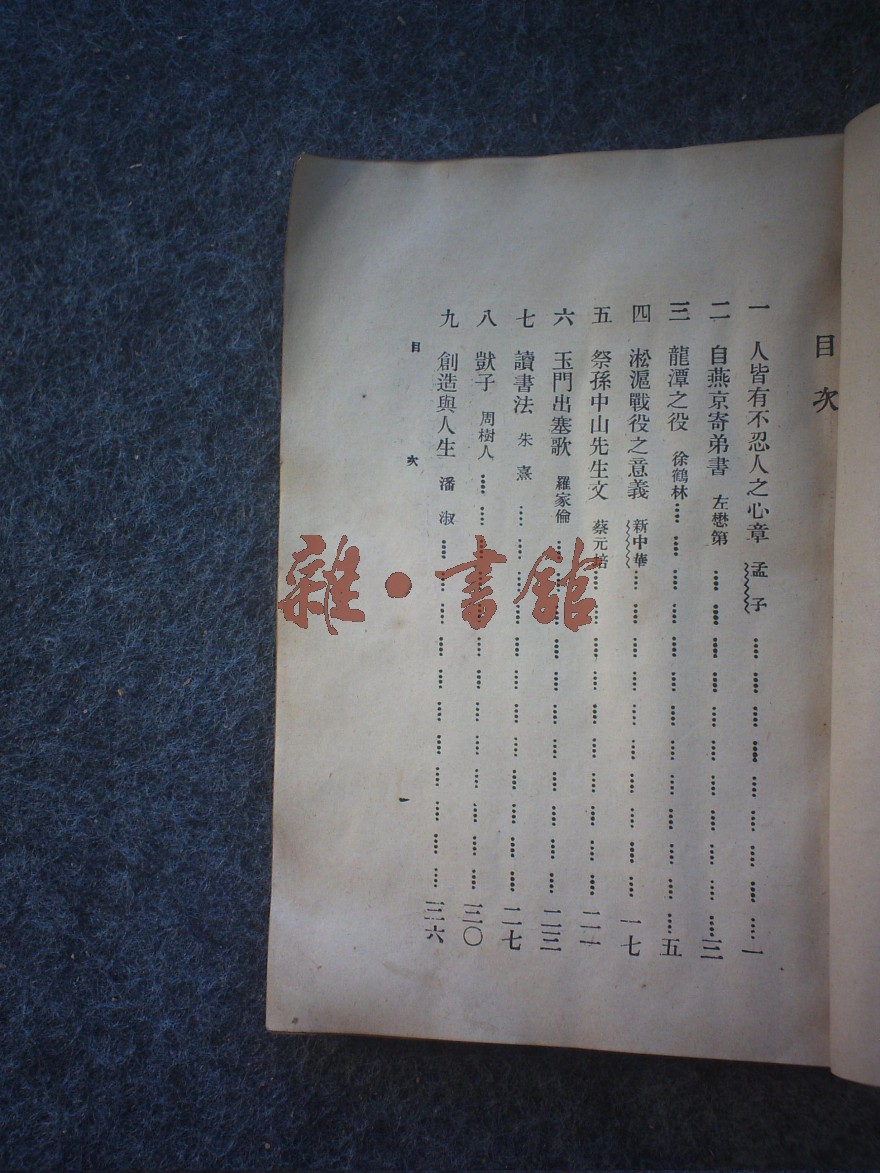 目次
一 人皆有不忍人之心章 孟子 一
二 自燕京寄弟書 左懋第 三
三 龍潭之役 徐鶴林 五
四 淞滬戰役之意義 新中華 一七
五 祭孫中山先生文 蔡元培 二一
六 玉門出塞歌 羅家倫 二三
七 讀書法 朱熹 二七
八 獃子 周樹人 三〇
九 創造與人生 潘淑 三六
目次 一
雜·書館